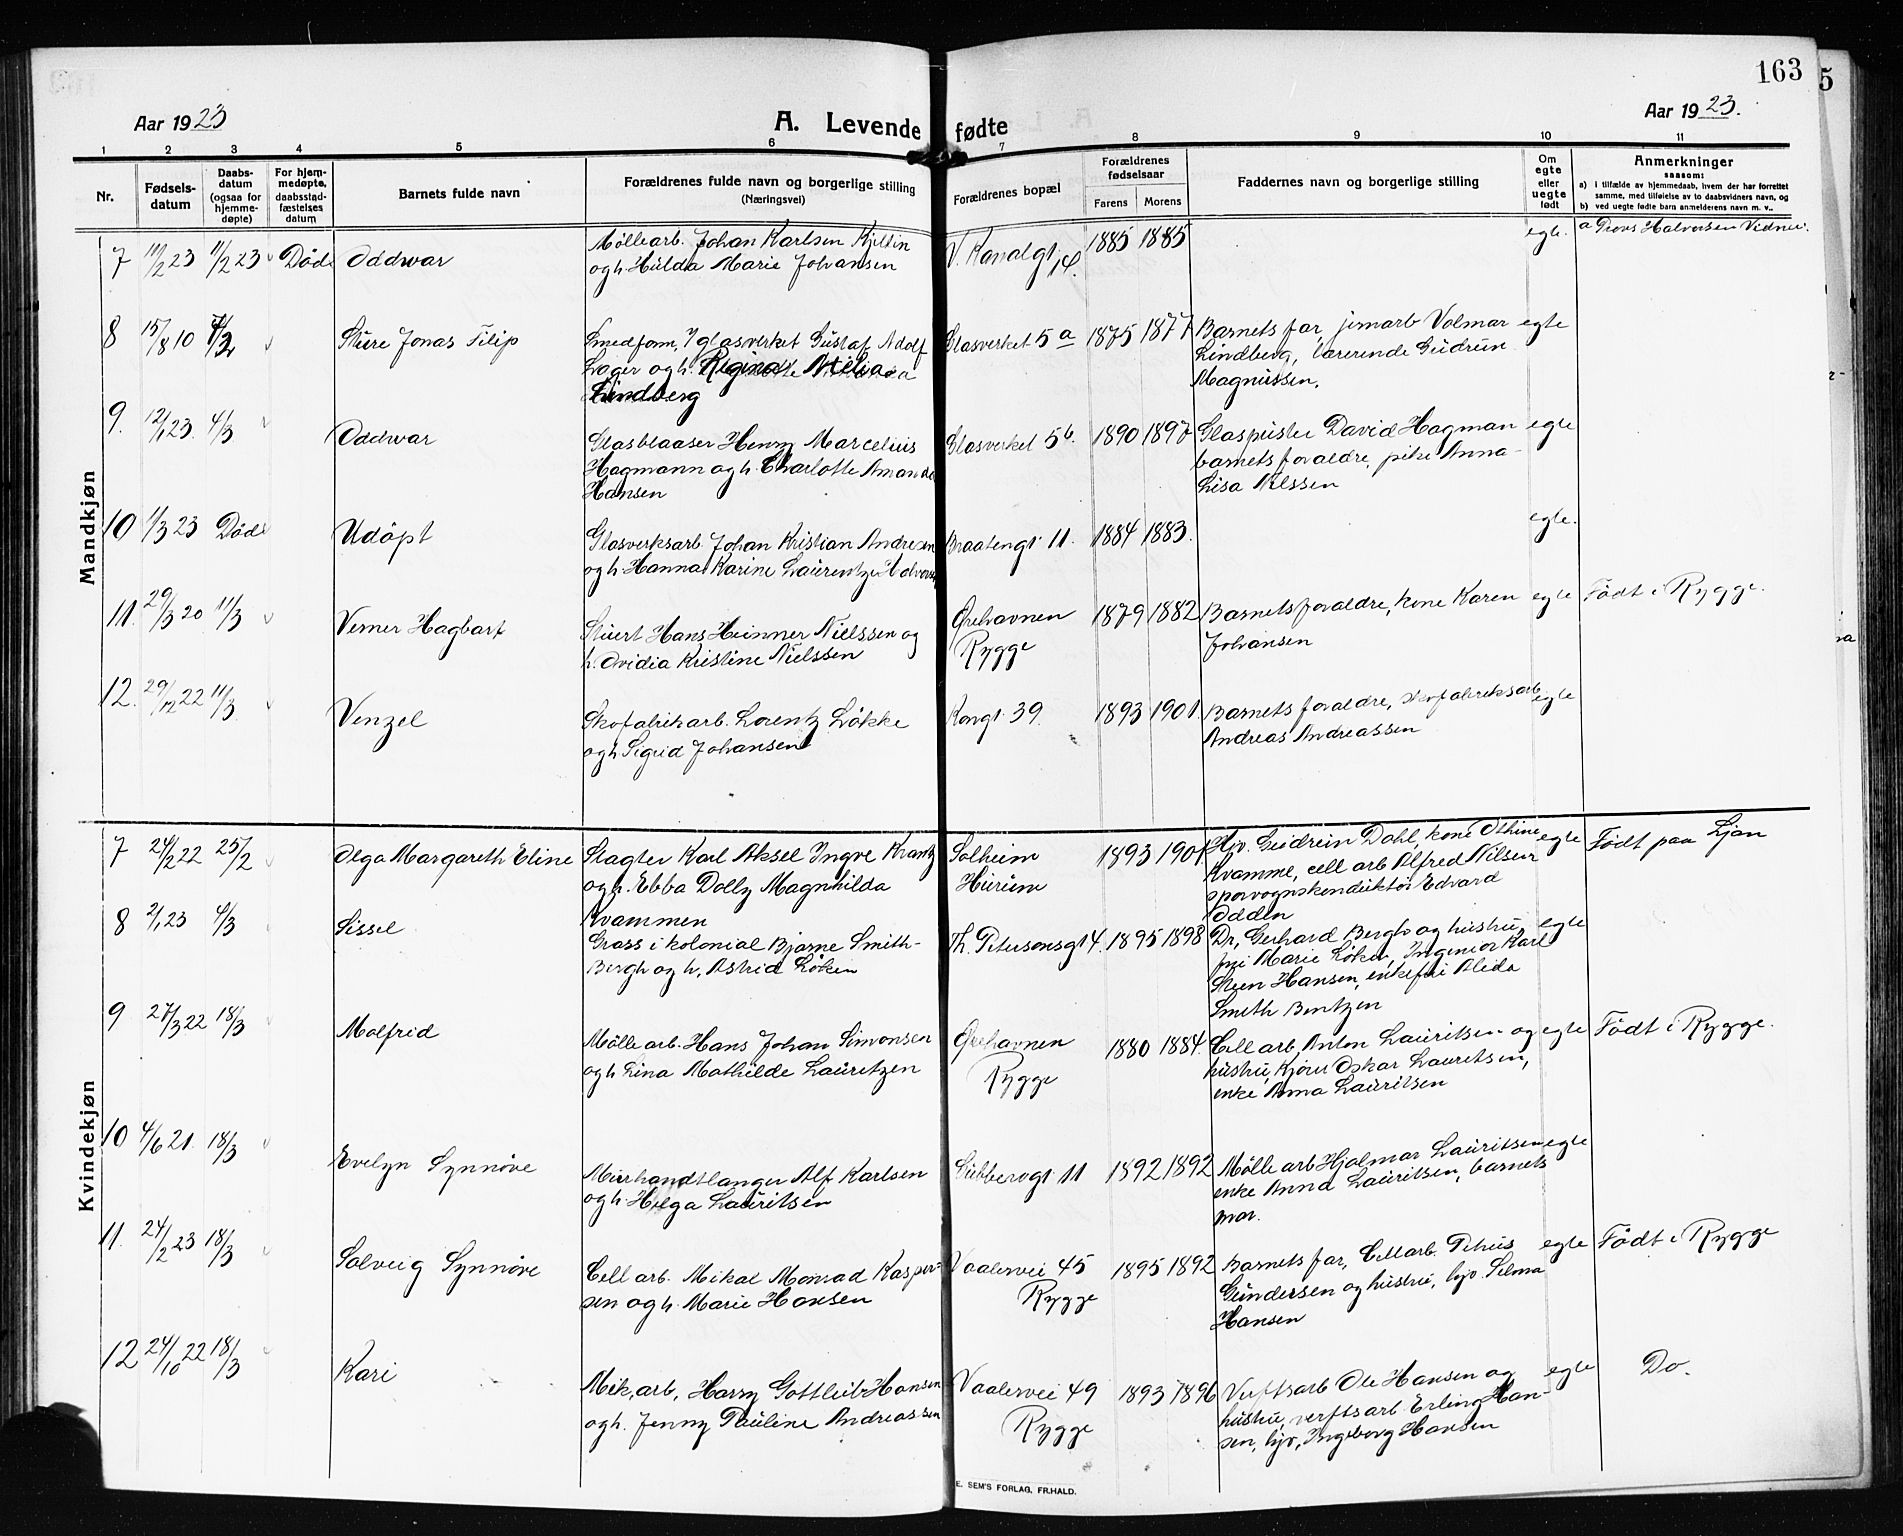 163
5
Aar 1923
A. Levende fødte
Aar 1923.
1 2 3 4 5 6 7 8 9 10 11
Nr.
Fødsels-
datum
Daabs-
datum
(ogsaa for
hjemme-
døpte)
For hjem-
medøpte,
daabsstad-
fæstelses
datum
Barnets fulde navn
Forældrenes fulde navn og borgerlige stilling
(Næringsvei)
Forældrenes bopæl
Forældrenes
fødselsaar
Farens Morens
Faddernes navn og borgerlige stilling
Om
egte
eller
uegte
født
Anmerkninger
saasom:
a) i tilfælde av hjemmedaab, hvem der har forrettet
samme, med tilføielse av to daabsvidners navn, og
b) ved uegte fødte barn anmelderens navn m. v..
Mandkjøn
7 11/2 23 11/2 23 Død Oddwar
Møllearb. Johan Karlsen Kjellin
og h. Hulda Marie Johansen
V. Kanalgt 14. 1885 1885 egte.
8 15/8 10 4/3 Sture Jonas Filip
Smedform. v/ glasverket Gustaf Adolf
Lager og h. Regina
Lindberg
Glasverket 5 a 1875 1877
Barnets far, jernarb Volmar
Lindberg, lærerinde Gudrun
Magnussen.
egte
9. 12/1 23. 4/3 Oddwar
Glasblaaser Henry Marcelius
Hagmann og h. Charlotte Amanda
Hansen
Glasverket 5 b. 1890 1897
Glaspuster David Hagman
barnets foraldre, pike Anna-
Lisa Nilssen
egte
10 1/3 23 Død Udöpt
Glasverksarb. Johan Kristian Andresen
og h. Hanna Karine Laurentze Halvorsen
Braatengt 11. 1884 1883. egte.
11. 29/3 20 11/3 Verner Hagbart
Stuert Hans Heinner Nielssen og
h. Ovidia Kristine Nielssen
Ørehavnen
Rygge
1879 1882
Barnets foraldre, kone Karen
Johansen
egte Født i Rygge.
12. 29/12 22 11/3 Venzel
Skofabrikarb. Lorentz Løkke
og h. Sigrid Johansen
Kongt. 39. 1893 1901
Barnets foraldre, skofabriksarb
Andreas Andreassen
egte
Kvindekjøn
7 24/2 22 25/2 Olga Margareth Eline
Slagter Karl Aksel Ingve Krantz
og h. Ebba Dolly Magnhilda
Kvammen
Solheim
Hurum
1893 1901
Hjv. Gudrun Dahl, kone Othine
Kvamme, cell arb Alfred Nilsen
sporvognskonduktör Edvard
Odden
egte Født paa Ljan
8 2/1 23 4/3 Sissel
Gross i kolonial Bjarne Smith-
Bergh og h. Astrid Løken
Th. Petersonsgt 4. 1895 1898
Dr. Gerhard Bergh og hustru
fru Marie Løken, Ingeniør Karl
Steen Hansen, enkefru Alida
Smith Bentzen
egte
9 27/3 22 18/3 Malfrid
Mølle arb. Hans Johan Simonsen
og h. Lina Mathilde Lauritzen
Ørehavnen
Rygge
1880 1884.
Cell arb. Anton Lauritsen og
hustru, Kjører Oskar Lauretsen,
enke Anna Lauritsen
egte Født i Rygge.
10 4/6 21. 18/3 Evelyn Synnöve
Murhandtlanger Alf Karlsen
og h. Helga Lauritsen
Lubbersgt 11 1892 1892
Mølle arb Hjalmar Lauritsen
enke Anna Lauritsen, barnets
mor.
egte
11. 24/2 23 18/3 Solveig Synnöve
Cell arb. Mikal Monrad Kasper-
sen og h. Marie Hansen
Vaalervei 45
Rygge
1895 1892
Barnets far, Cellarb. Petrus
Gundersen og hustru, hjv. Selma
Hansen
egte Født i Rygge
12 24/10 22 18/3 Kari
Mek. arb. Harry Gottlieb Hansen
og h. Jenny Pauline Andreassen
Vaalervei 49
Rygge
1893 1896
Verftsarb Ole Hansen og
hustru, verftsarb. Erling Han-
sen, hjv. Ingeborg Hansen
egte Do.
E. SEM'S FORLAG, FR.HALD.